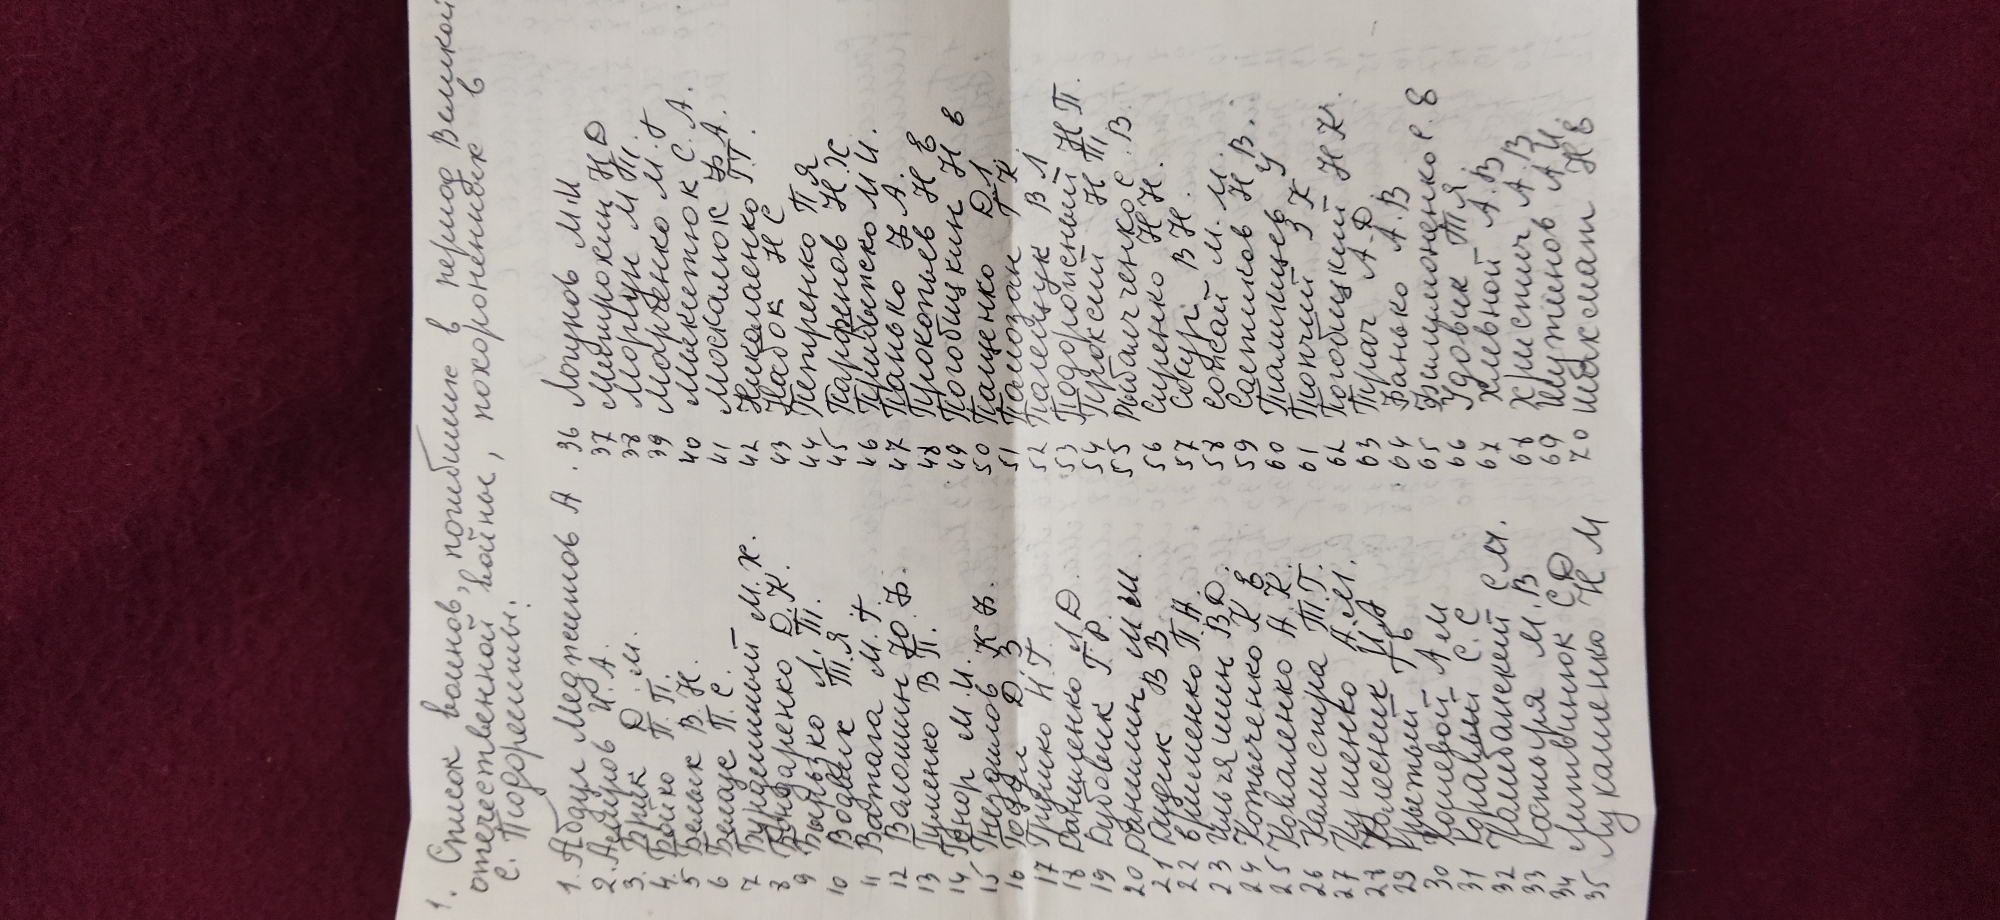 1. Список воинов, погибших в период Великой
отечественной войны, похороненных в
с. Подорешны.
1. Абдул Меджемов А.
2. Амиров И.А.
3. Брик Д.М.
4. Бойко П.П.
5 Белык В.Н.
6 Белаус П.С.
7 Бурдейный М.Х.
8 Бондаренко Д.К.
9 Былызко Л.Т.
10 Водвик Т.Я
11 Ватага М.Т
12 Валошин Ю.Ф.
13 Гуменко В П.
14 Гонор М.И.
15 Гнездилов К Ф.
16 Д З
17 Грушко И.Г.
18 Данленко Л Д
19 Дубовик Г.Р.
20 Данилин М М
21 Дидик В В
22 Ефименко П.Н.
23 Ильяшин В.Д.
24 Котыченко К Е
25 Коваленко А.К.
26 Калистра Т.Г.
27 Куценко А.М.
28 Колесник И А
29 Крытый Г В
30 Кошевой А М
31 Куравым С.С
32 С М.
33 Костыря М.В
34 Литвинюк С Д
35 Лукашенко Н М
36 Логунов М.М
37 Митрокин Н Д
38 Моргун М П.
39 Марченко М.Т
40 Микитюк С.А.
41 Москалюк Ф А.
42 Николаенко Г.Г.
43 Набок Н С
44 Петренко П Я
45 Парфенов Н.Х
46 Прибытко М И.
47 Панько Ф А.
48 Прокопьев Н Е
49 Погобицкин Н В
50 Пащенко Д Л
51 Памозан Г К
52 Палещук В Л
53 Подорожений Н П.
54 Проксий Н П
55 Рыбалченко С.В.
56 Сиренко Н Н.
57 Сокур В Н.
58 Сожай М.М.
59 Салтиков Н В.
60 У
61 Топчий З К
62 Погобицкий Н К.
63 Турач А.Д
64 Фанько А.В
65 Филимоненко С. Е
66 Удовик Т Я
67 Хлевной А.В
68 Христич А В
69 Шутенов А И.
70 Шаксман Н В